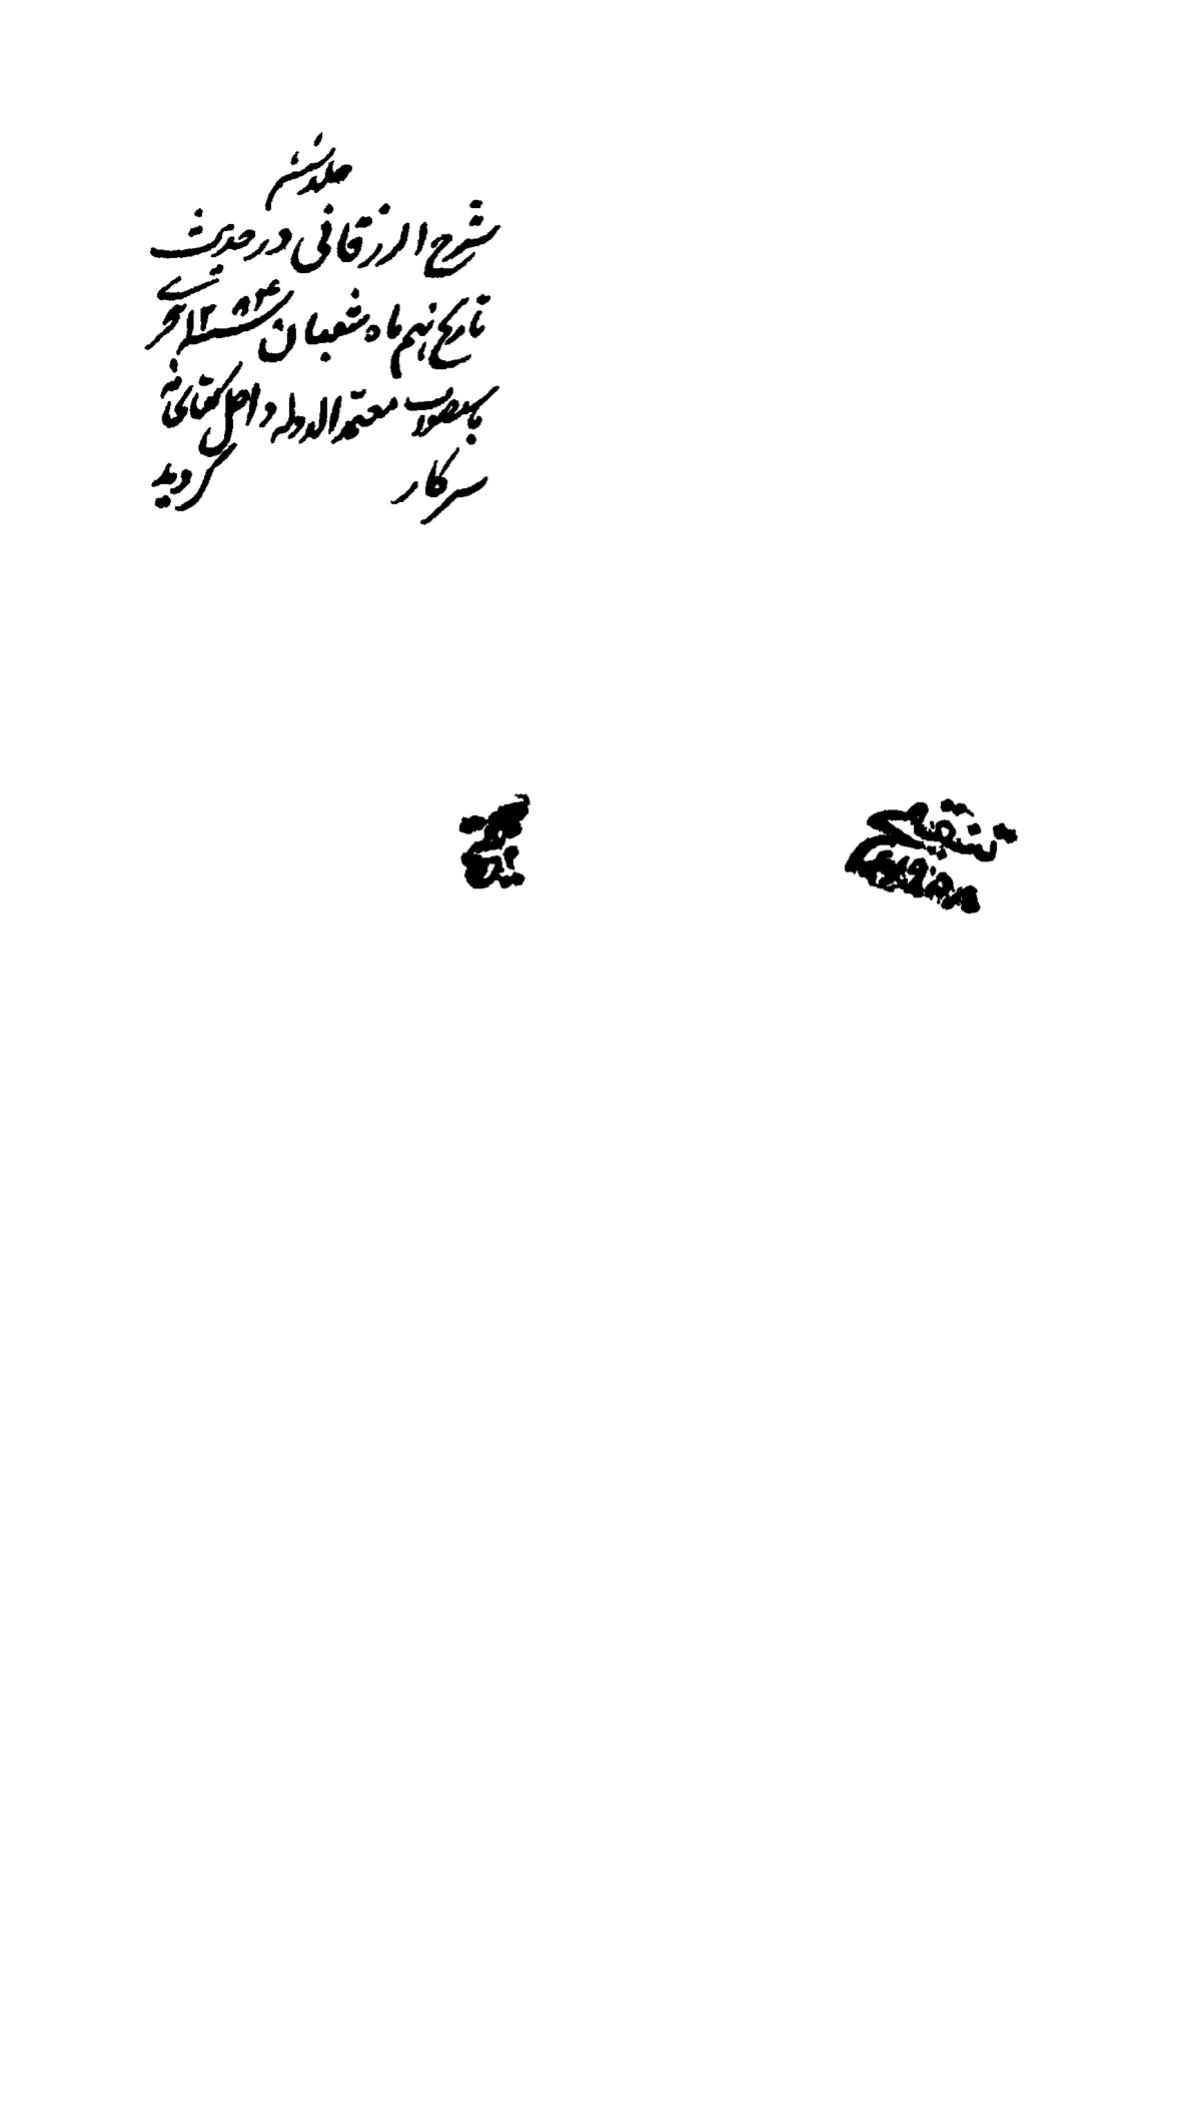 جلد ششم
شرح الزرقانی در حدیث
تاریخ نهم ماه شعبان سنه ۱۲۸۴ هجری
باستصواب معتمد الدوله داخل کتابخانه
سرکار گردید
تنقیح